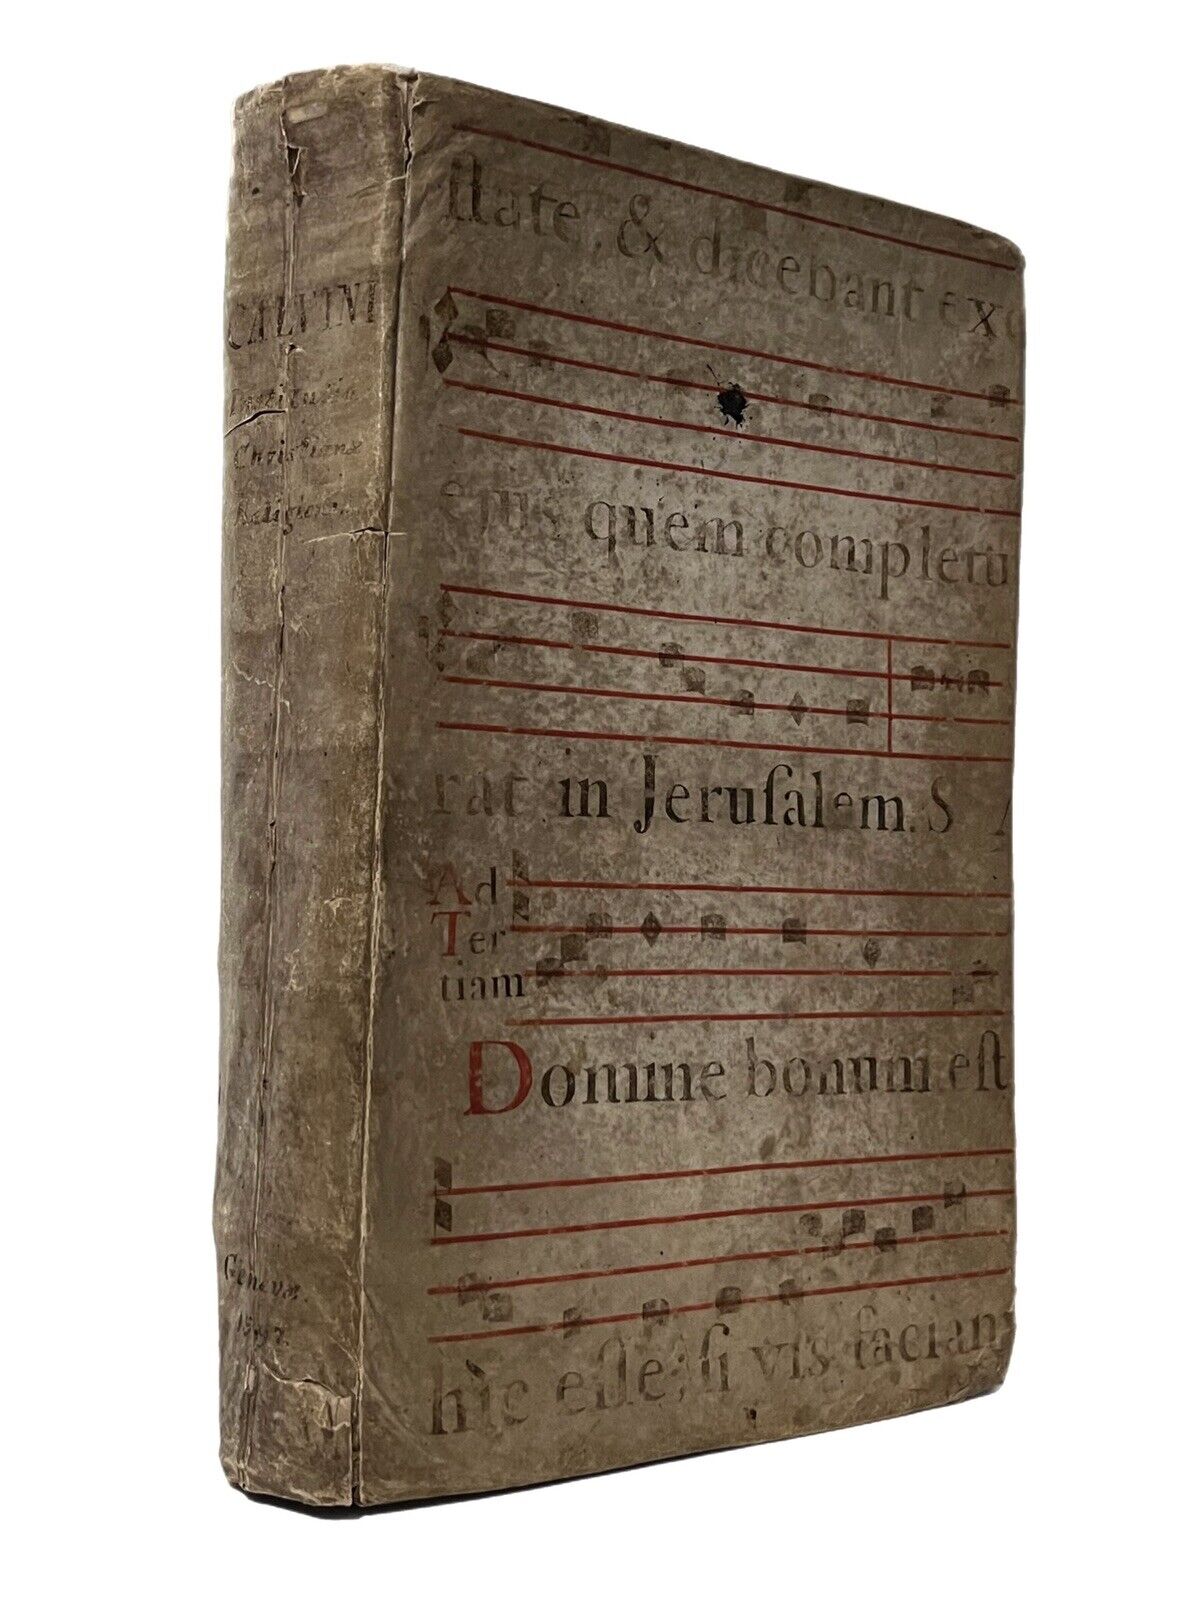 CALVINI
Institutio
Christianæ
Religionis.
Genevæ.
ſtate, & dicebant ex
ejus quem completu
rat in Jeruſalem. S
Ad
Ter
tiam
Domine bonum eſt
hìc eſſe, ſi vis faciam